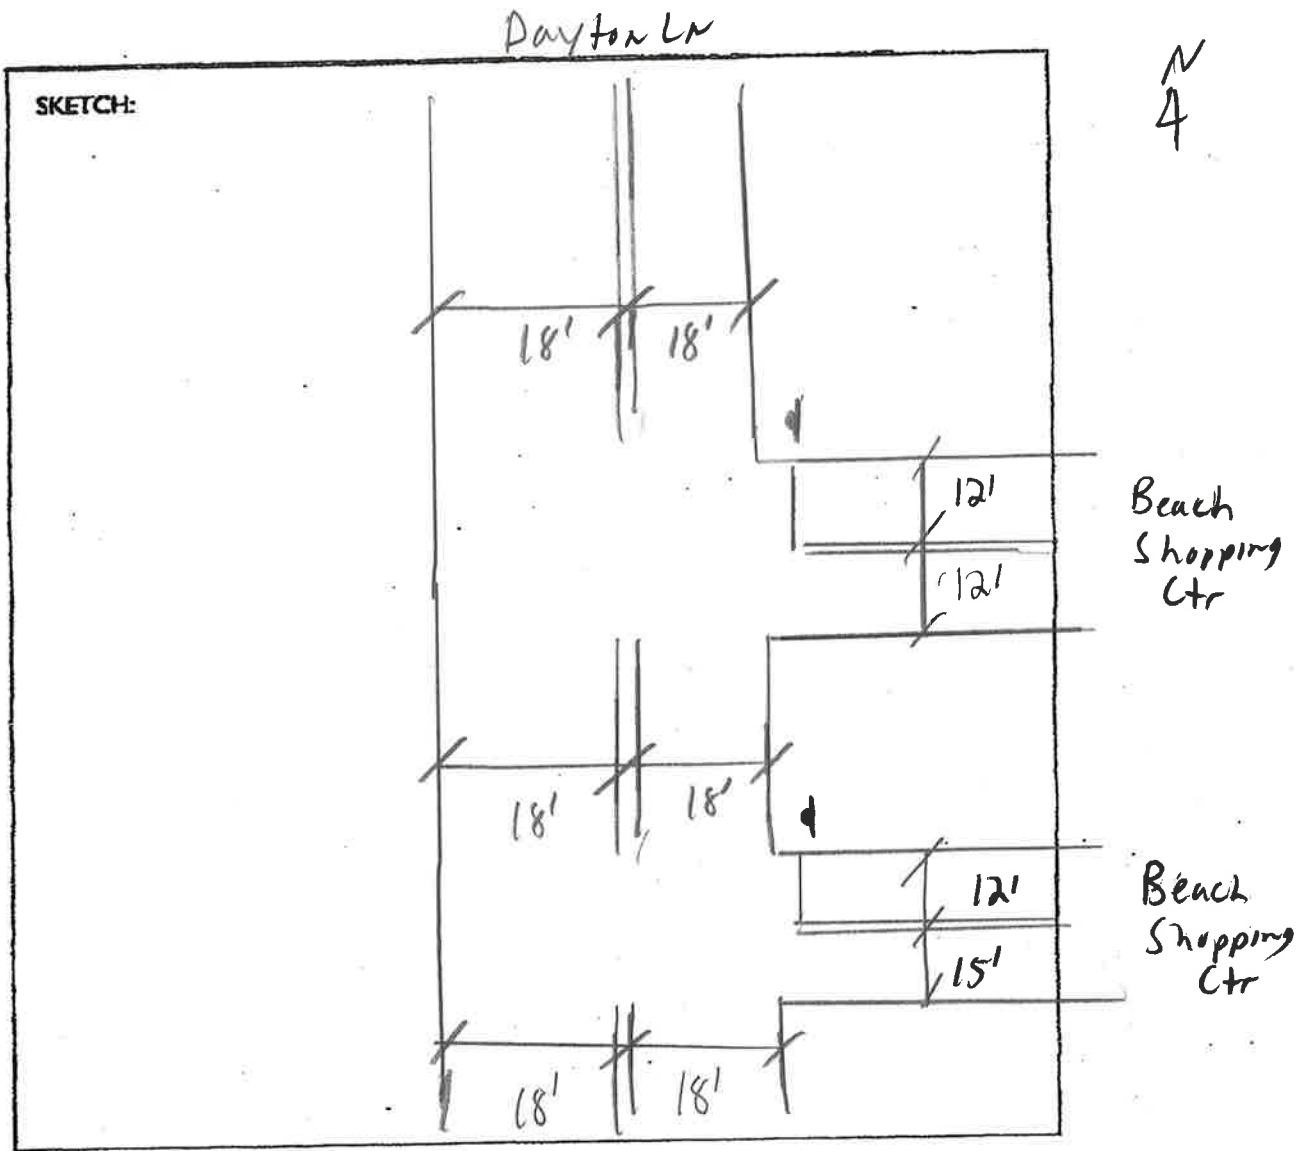 Dayton LN
N
SKETCH:
18' 18'
12'
Beach
Shopping
Ctr
12'
18' 18'
12'
Beach
Shopping
Ctr
15'
18' 18'